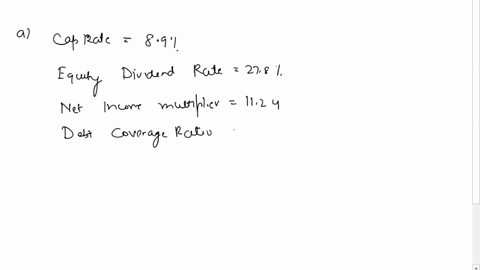 a) Cap Rate = 8.9%
Equity Dividend Rate = 27.8%
Net Income multiplier = 11.24
Debt Coverage Ratio